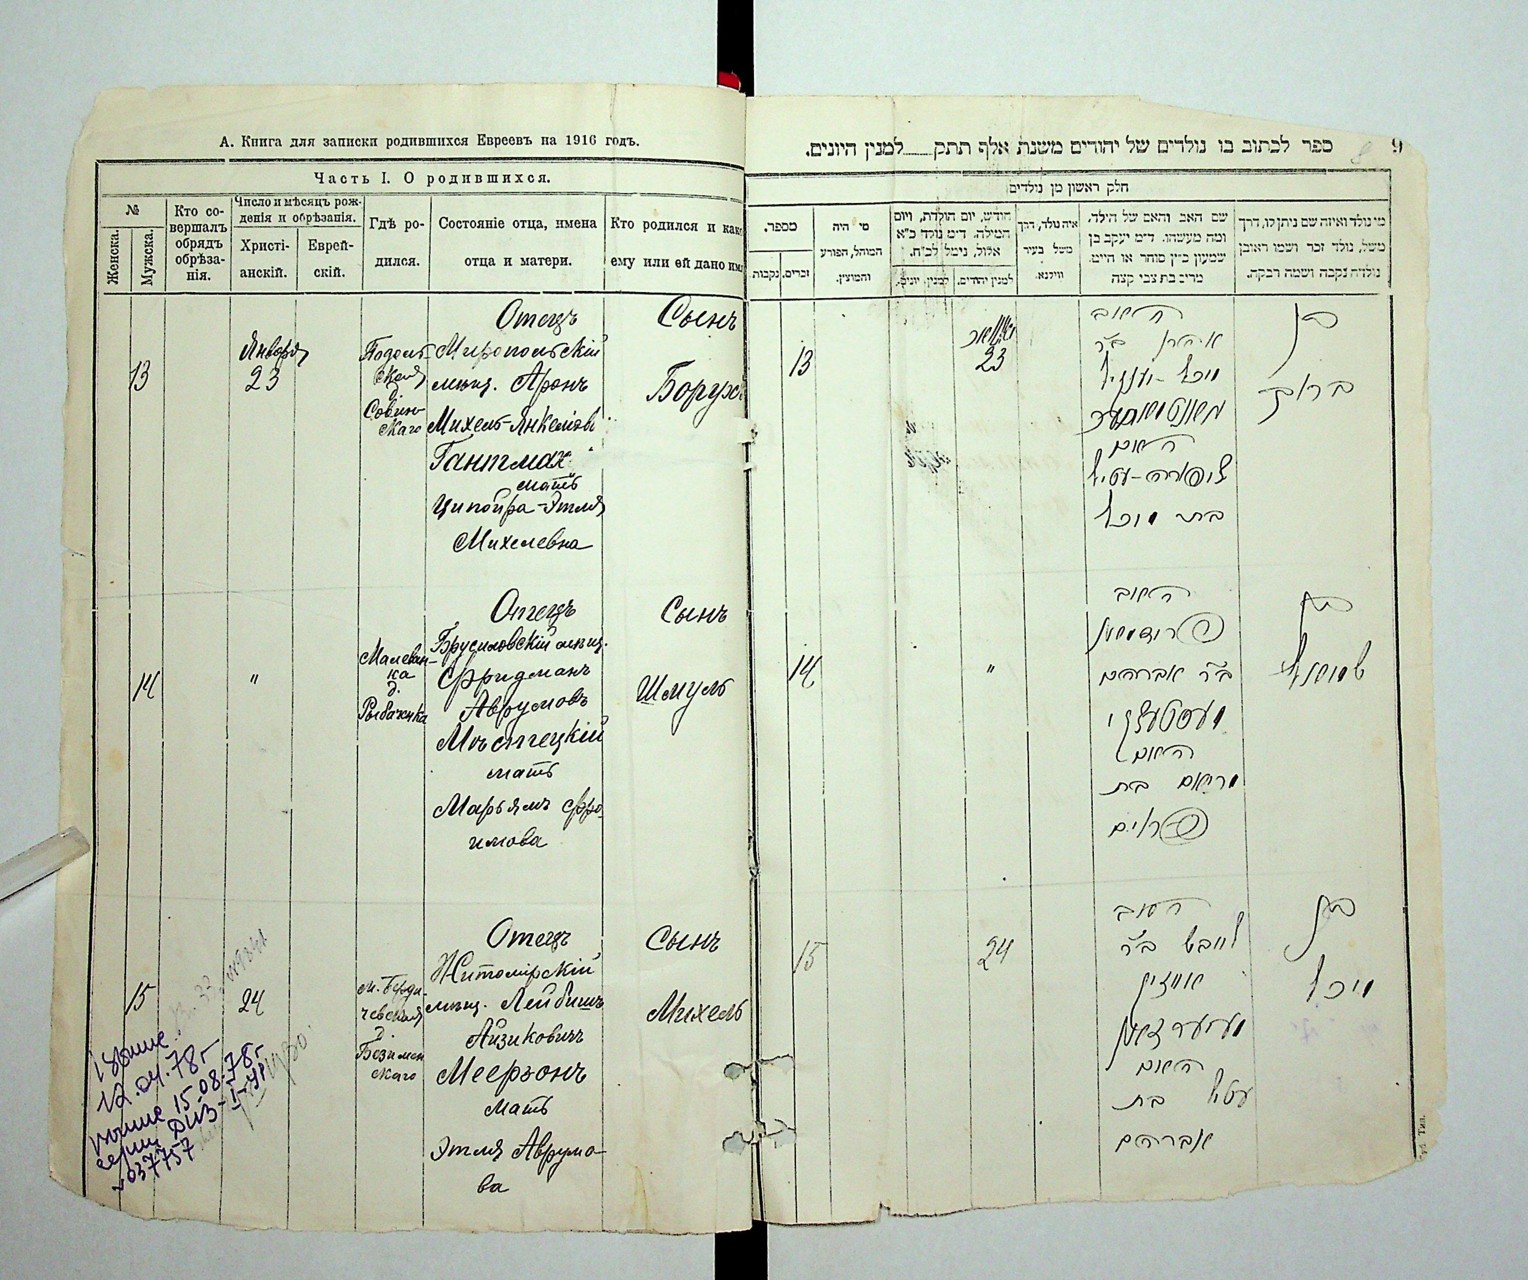 А. Книга для записки родившихся Евреевъ на 1916 годъ.
Часть I. О родившихся.
№
Женска.
Мужска.
Кто со-
вершалъ
обрядъ
обрѣза-
нія.
Число и мѣсяцъ рож-
денія и обрѣзанія.
Христі-
анскій.
Еврей-
скій.
Гдѣ ро-
дился.
Состояніе отца, имена
отца и матери.
Кто родился и как
ему или ей дано им
13
Января
23
Подоль-
ская
д.
Совин-
скаго
Отецъ
Миропольскій
мѣщ. Аронъ
Михель-Янкеліовъ
Гантмах
мать
Ципойра-Этля
Михелевна
Сынъ
Борухъ
14
"
Малеван-
ка
д.
Рыбачука
Отецъ
Брусиловскій мѣщ.
Фридманъ
Аврумовъ
Мъстецкій
мать
Марьямъ Фро-
имова
Сынъ
Шмуль
15
24
М. Берди-
чевская
д.
Безимен
скаго
Отецъ
Житомірскій
мѣщ. Лейбишъ
Айзиковичъ
Меерзонъ
мать
Этля Аврумо-
ва
Сынъ
Михель
12.04.78 г
15.08.78 г.
серии
037757
9
ספר לכתוב בו נולדים של יהודים משנת אלף תתק___למנין היונים.
חלק ראשון מן נולדים
מי נולד ואיזה שם ניתן לו, דרך
משל, נולד זכר ושמו ראובן
נולדה נקבה ושמה רבקה.
שם האב והאם של הילד,
ומה מעשהו. ד״מ יעקב בן
שמעון כ״ץ סוחר או חייט.
מרים בת צבי קצה
איה נולד, דרך
משל בעיר
ווילנא.
חודש, יום תולדת, ויום
המילה. ד״מ נולד כ״א
אלול, נימל לכ״ח.
למנין יהודים.
למנין יונים.
מי היה
המוהל, הפורע
והמוצץ.
מספר.
זכרים.
נקבות
13
יאנואר
23
האב
אהרן ב״ר
מיכל-יענקיל
האם
ציפורה-עטיל
בת מיכל
בן
ברוך
14
"
האב
פרידמאן
ב״ר אברהם
האם
מרים בת
פראים
בן
שמואל
15
24
האב
לייבש ב״ר
אייזיק
מייערזאהן
האם
עטל בת
אברהם
בן
מיכל